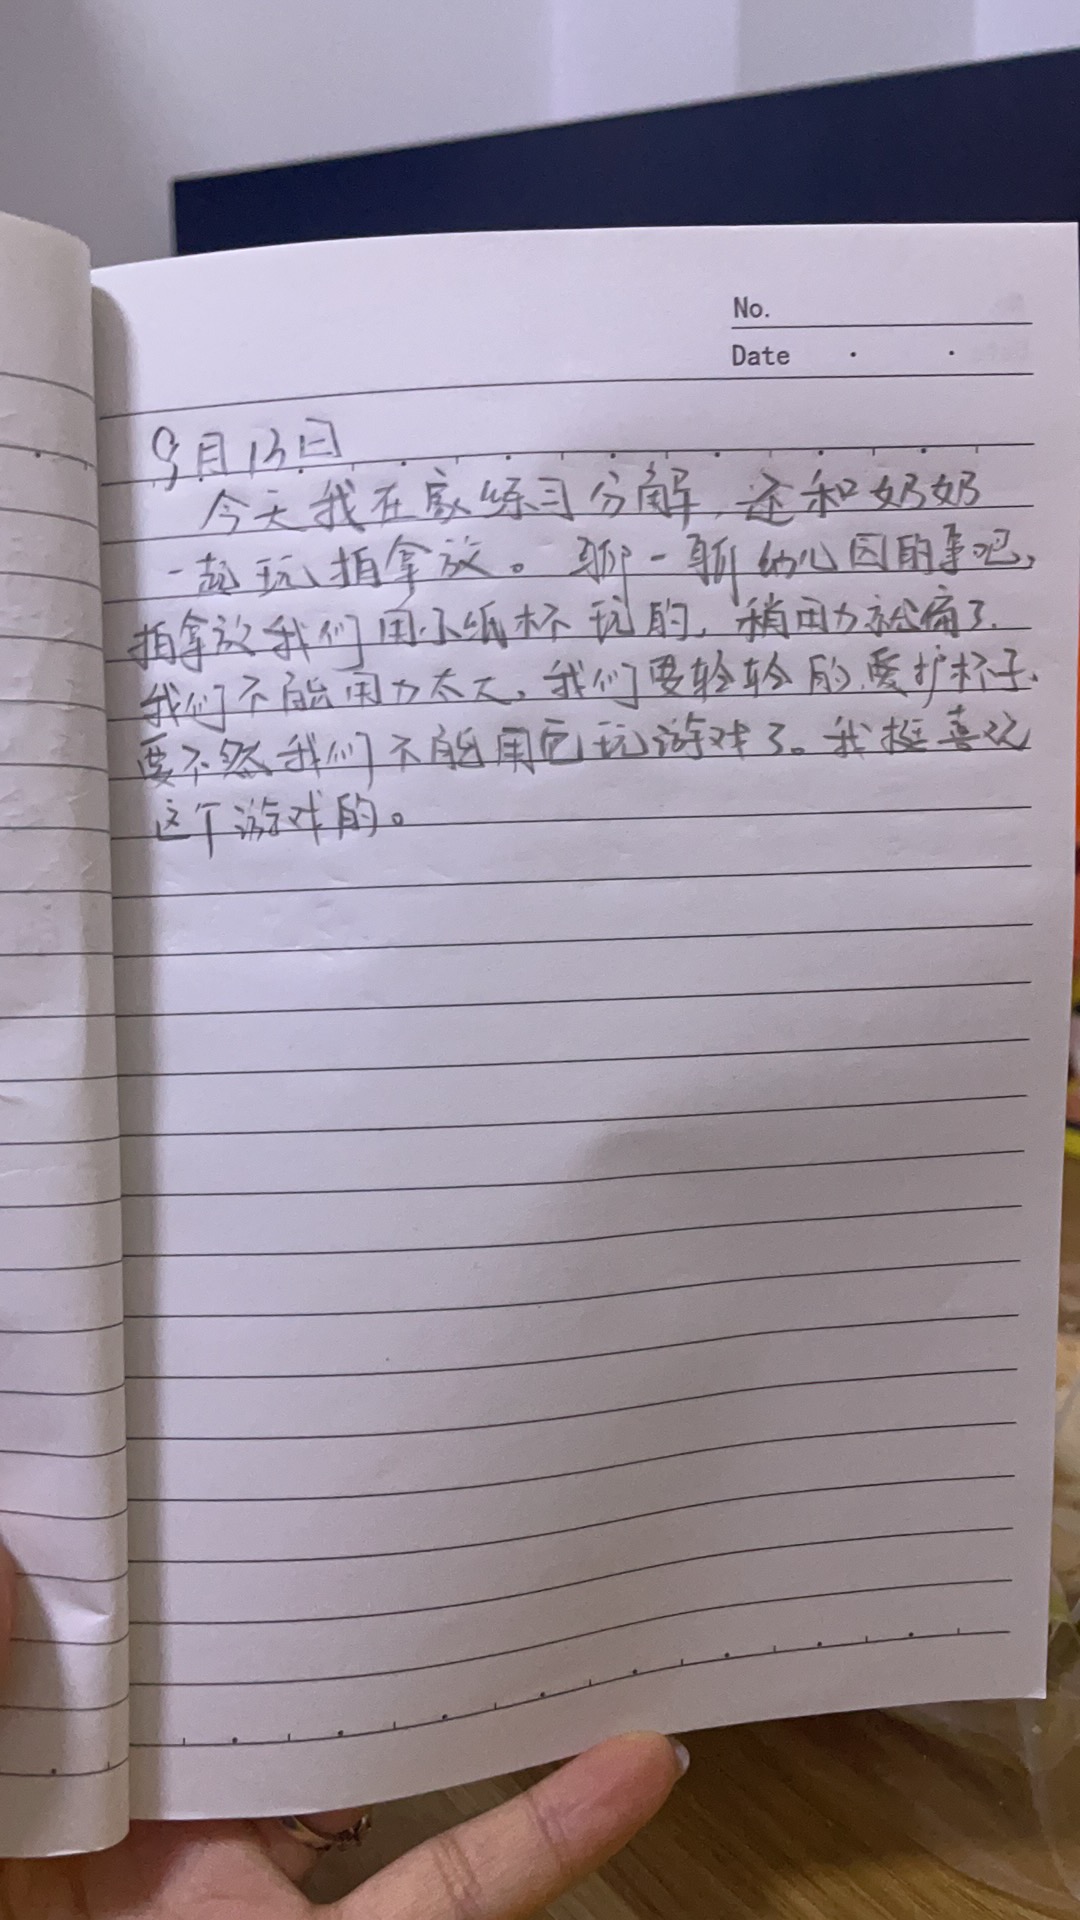 No.
Date
9月13日
今天我在家练习分解，还和奶奶
一起玩拍拿放。聊一聊幼儿园的事吧，
拍拿放我们用小纸杯玩的，稍用力就痛了.
我们不能用力太大，我们要轻轻的.爱护杯子.
要不然我们不能用它玩游戏了。我挺喜欢
这个游戏的。